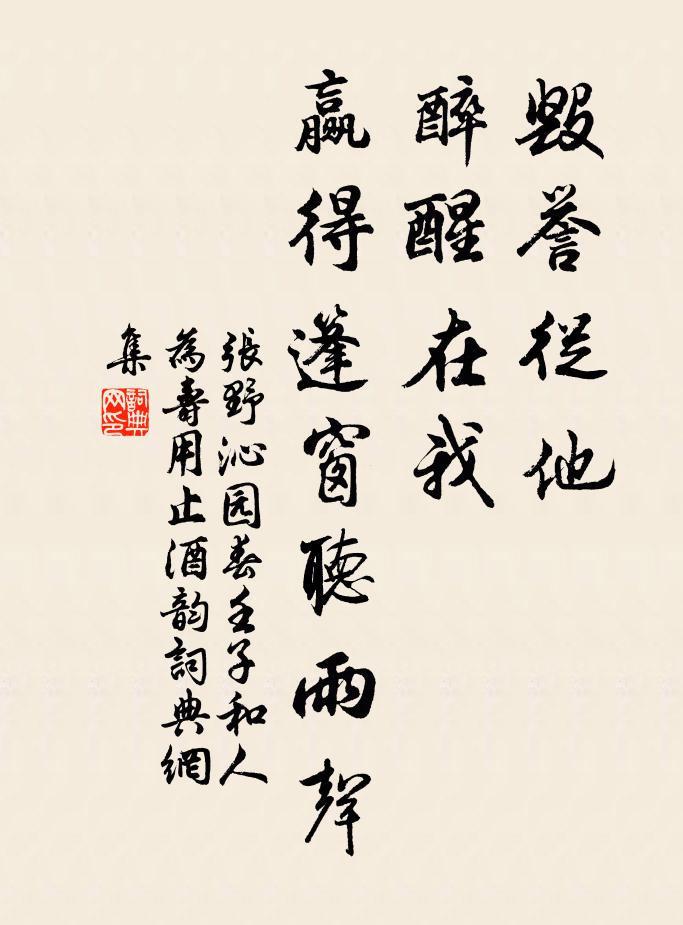 毀譽從他
醉醒在我
贏得篷窗聽雨聲
張野沁园春壬子和人
為壽用止酒韵詞典網
集
詞典
网印